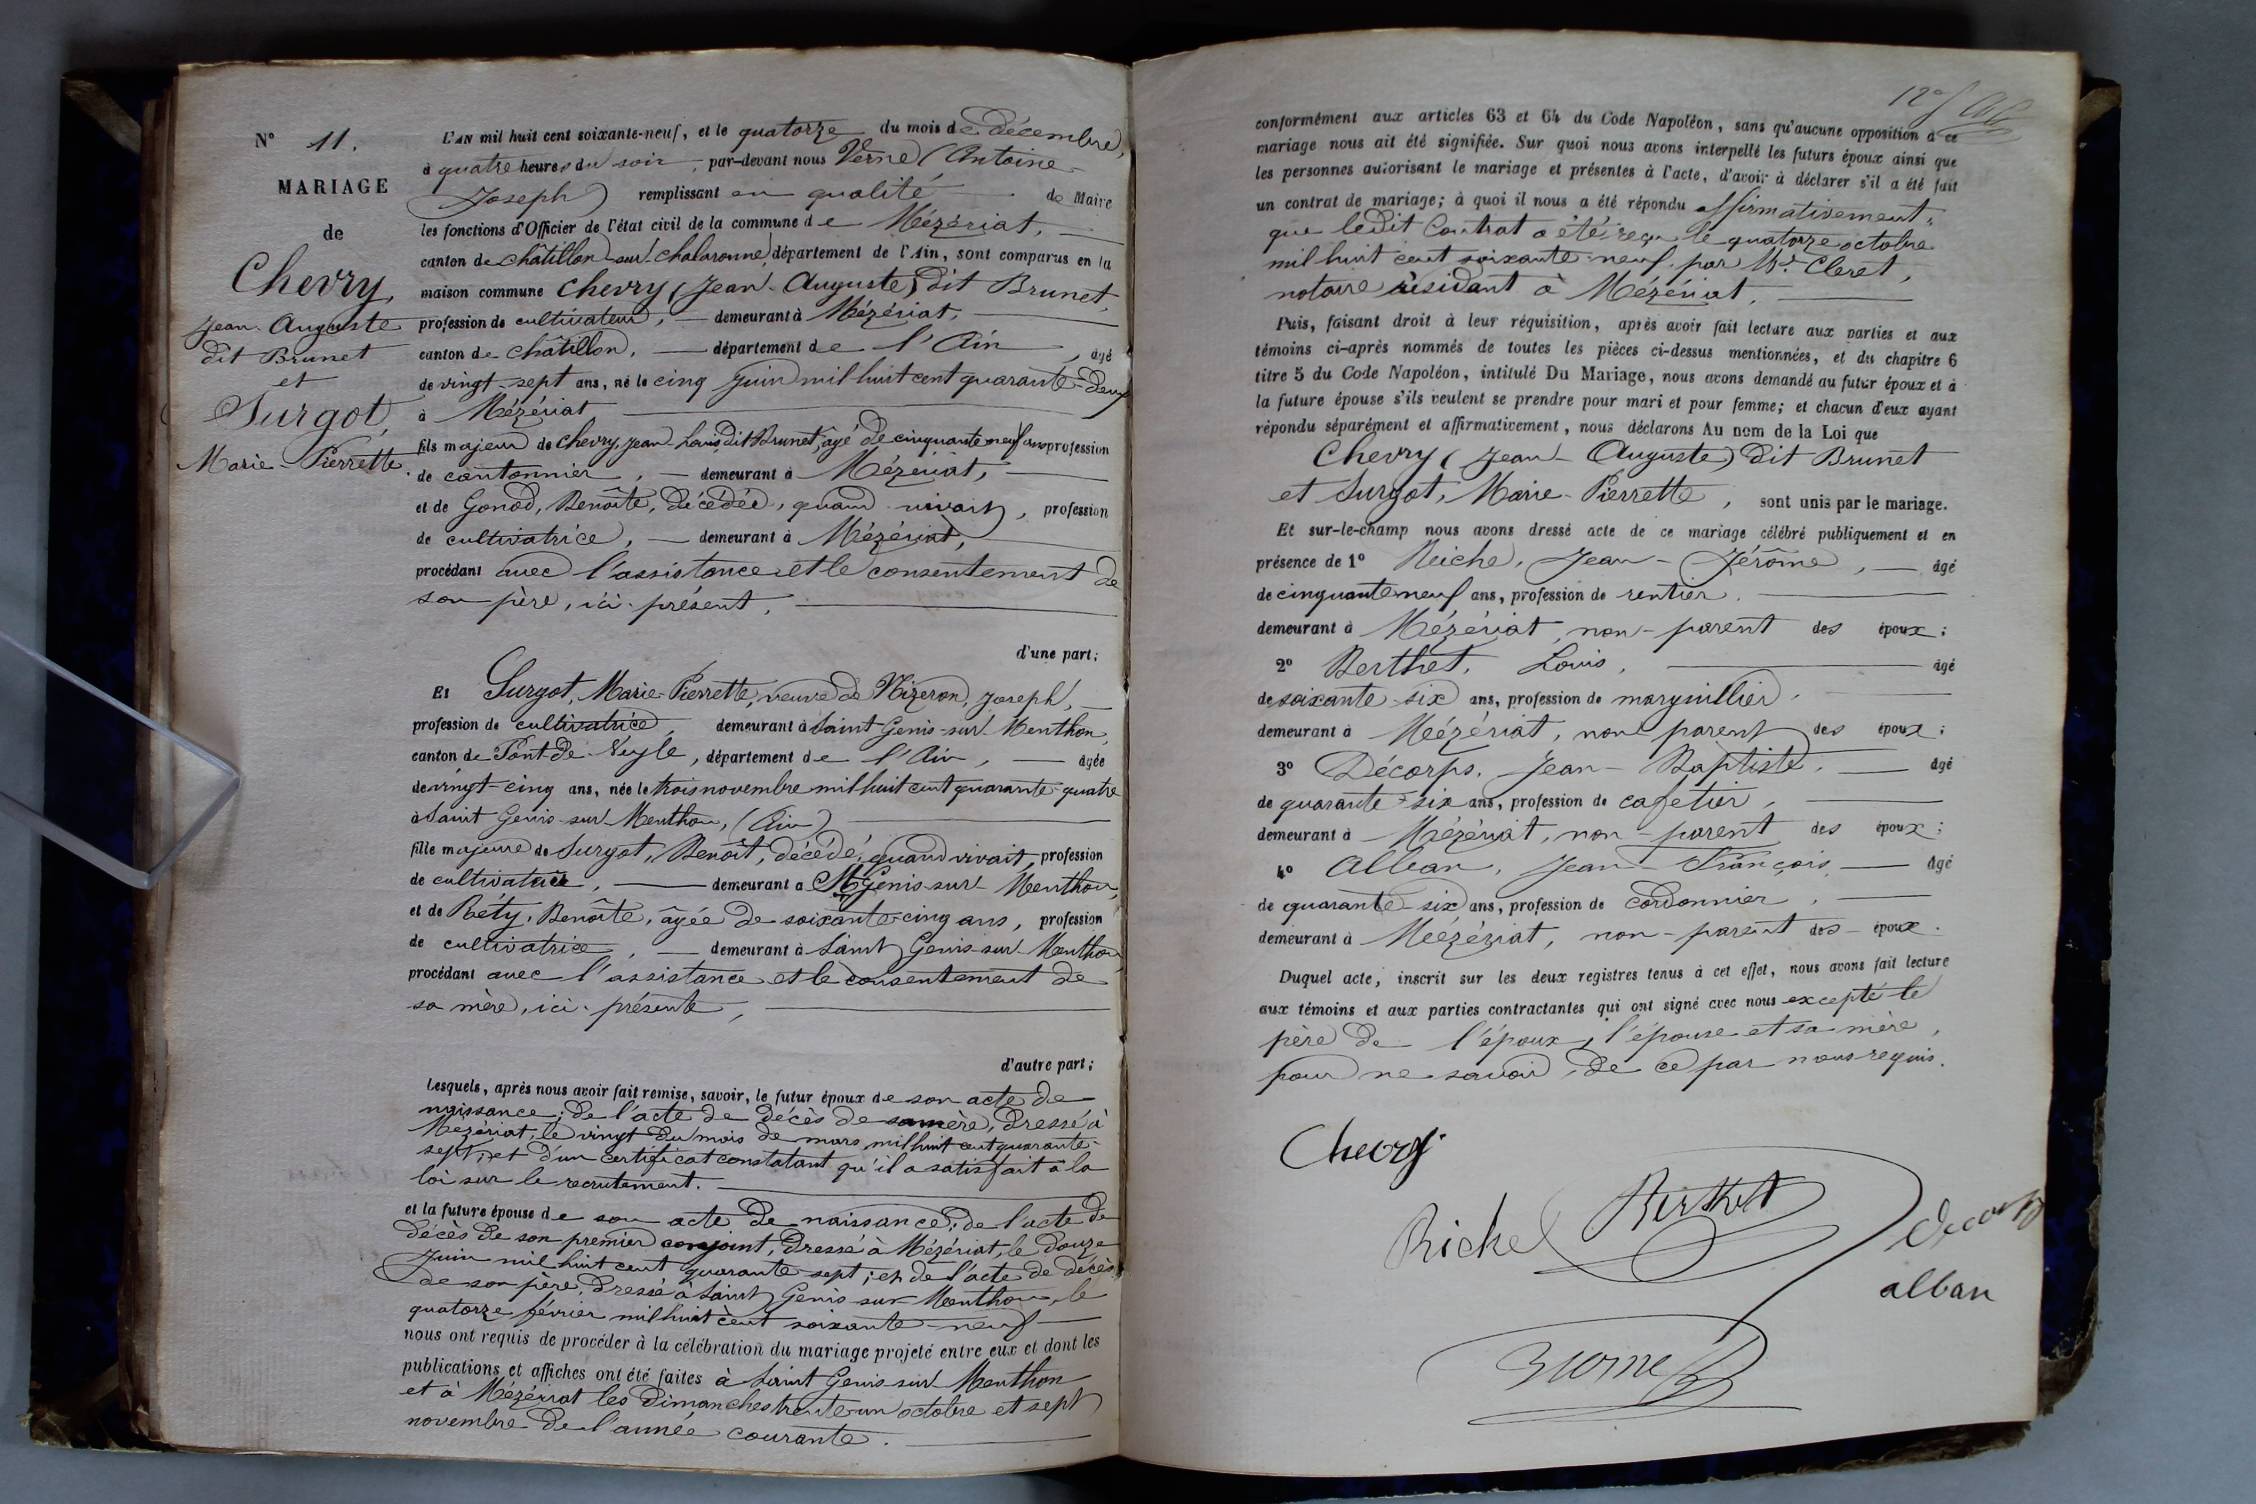 N° 11.
MARIAGE
de
Chevry,
Jean-Auguste
dit Brunet
et
Surgot,
Marie-Pierrette.
L'AN mil huit cent soixante-neuf, et le quatorze du mois de décembre,
à quatre heures du soir, par-devant nous Verne (Antoine-
Joseph) remplissant en qualité de Maire
les fonctions d'Officier de l'état civil de la commune de Mézériat,
canton de Châtillon-sur-Chalaronne, département de l'Ain, sont comparus en la
maison commune Chevry (Jean-Auguste) dit Brunet,
profession de cultivateur, demeurant à Mézériat,
canton de Châtillon, département de l'Ain, âgé
de vingt-sept ans, né le cinq Juin mil huit cent quarante-deux
à Mézériat
fils majeur de Chevry, Jean-Louis dit Brunet, âgé de cinquante neuf ans profession
de cantonnier, demeurant à Mézériat,
et de Gonod, Benoîte, décédée, quand vivait, profession
de cultivatrice, demeurant à Mézériat,
procédant avec l'assistance et le consentement de
son père, ici présent,
d'une part;
Et Surgot, Marie-Pierrette, veuve de Nizeron, Joseph,
profession de cultivatrice, demeurant à Saint Genis-sur-Menthon,
canton de Pont-de-Veyle, département de l'Ain, âgée
de vingt-cinq ans, née le trois novembre mil huit cent quarante-quatre
à Saint Genis-sur-Menthon, (Ain)
fille majeure de Surgot, Benoît, décédé, quand vivait, profession
de cultivateur, demeurant à St Genis-sur-Menthon,
et de Réty, Benoîte, âgée de soixante-cinq ans, profession
de cultivatrice, demeurant à Saint Genis-sur-Menthon,
procédant avec l'assistance et le consentement de
sa mère, ici présente,
d'autre part;
Lesquels, après nous avoir fait remise, savoir, le futur époux de son acte de
naissance; de l'acte de décès de sa mère, dressé à
Mézériat, le vingt du mois de mars mil huit cent quarante-
sept; et d'un certificat constatant qu'il a satisfait à la
loi sur le recrutement.
et la future épouse de son acte de naissance; de l'acte de
décès de son premier conjoint, dressé à Mézériat, le douze
Juin mil huit cent quarante-sept; et de l'acte de décès
de son père, dressé à Saint Genis-sur-Menthon, le
quatorze février mil huit cent soixante-neuf
nous ont requis de procéder à la célébration du mariage projeté entre eux et dont les
publications et affiches ont été faites à Saint Genis sur Menthon
et à Mézériat les dimanches trente-un octobre et sept
novembre de l'année courante.
conformément aux articles 63 et 64 du Code Napoléon, sans qu'aucune opposition à ce
mariage nous ait été signifiée. Sur quoi nous avons interpellé les futurs époux ainsi que
les personnes autorisant le mariage et présentes à l'acte, d'avoir à déclarer s'il a été fait
un contrat de mariage; à quoi il nous a été répondu affirmativement,
que ledit Contrat a été reçu le quatorze octobre
mil huit cent soixante-neuf, par Me Cleret,
notaire résidant à Mézériat.
Puis, faisant droit à leur réquisition, après avoir fait lecture aux parties et aux
témoins ci-après nommés de toutes les pièces ci-dessus mentionnées, et du chapitre 6
titre 5 du Code Napoléon, intitulé Du Mariage, nous avons demandé au futur époux et à
la future épouse s'ils veulent se prendre pour mari et pour femme; et chacun d'eux ayant
répondu séparément et affirmativement, nous déclarons Au nom de la Loi que
Chevry (Jean-Auguste) dit Brunet
et Surgot, Marie-Pierrette, sont unis par le mariage.
Et sur-le-champ nous avons dressé acte de ce mariage célébré publiquement et en
présence de 1° Riche, Jean-Jérôme, âgé
de cinquante neuf ans, profession de rentier.
demeurant à Mézériat, non-parent des époux;
2° Berthet, Louis, âgé
de soixante-six ans, profession de marguillier.
demeurant à Mézériat, non parent des époux;
3° Décorps, Jean-Baptiste, âgé
de quarante-six ans, profession de cafetier,
demeurant à Mézériat, non-parent des époux;
4° Alban, Jean-François, âgé
de quarante-six ans, profession de cordonnier,
demeurant à Mézériat, non-parent des époux.
Duquel acte, inscrit sur les deux registres tenus à cet effet, nous avons fait lecture
aux témoins et aux parties contractantes qui ont signé avec nous excepté le
père de l'époux, l'épouse et sa mère,
pour ne savoir, de ce par nous requis.
Chevry
Riche Berthet Decorps
alban
Verne